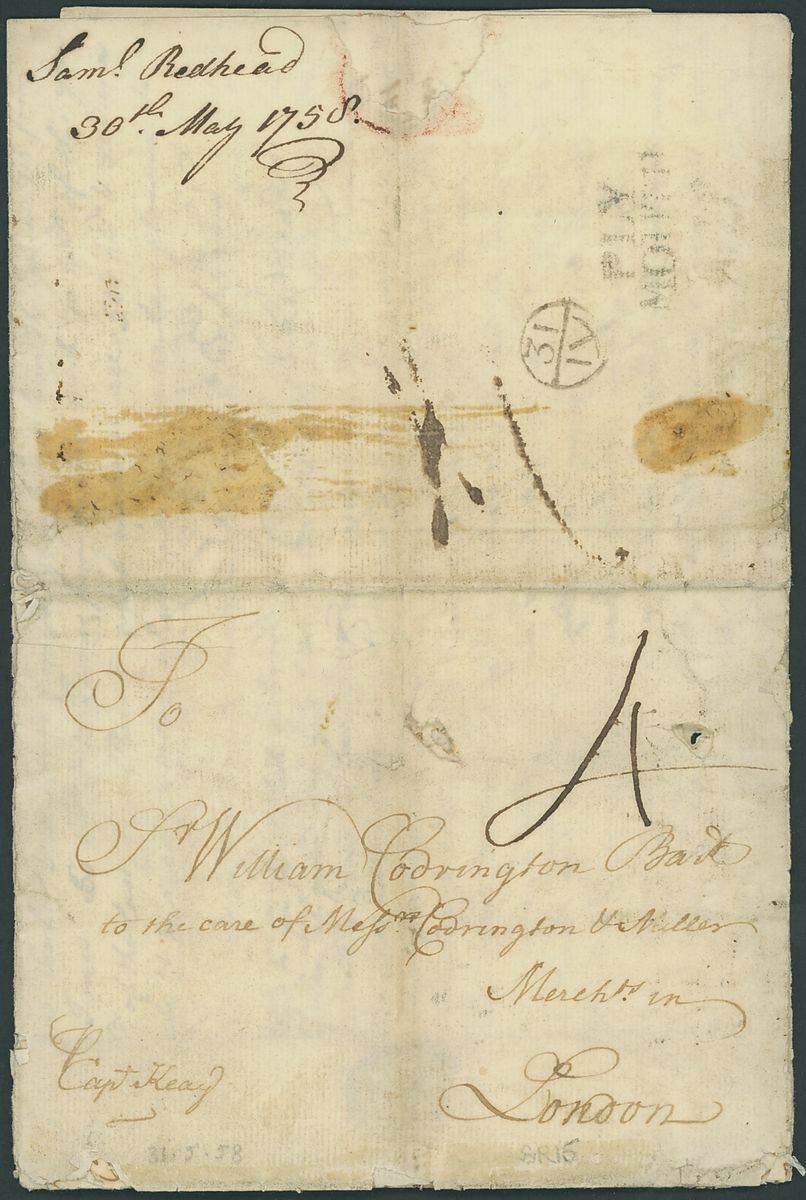 Saml Redhead
30th May 1758.
PLY
MOUTH
31
IV
To
4
Sr William Codrington Bart
to the care of Messrs Codrington & Miller
Merchts in
London
Capt Keay
31.5.58